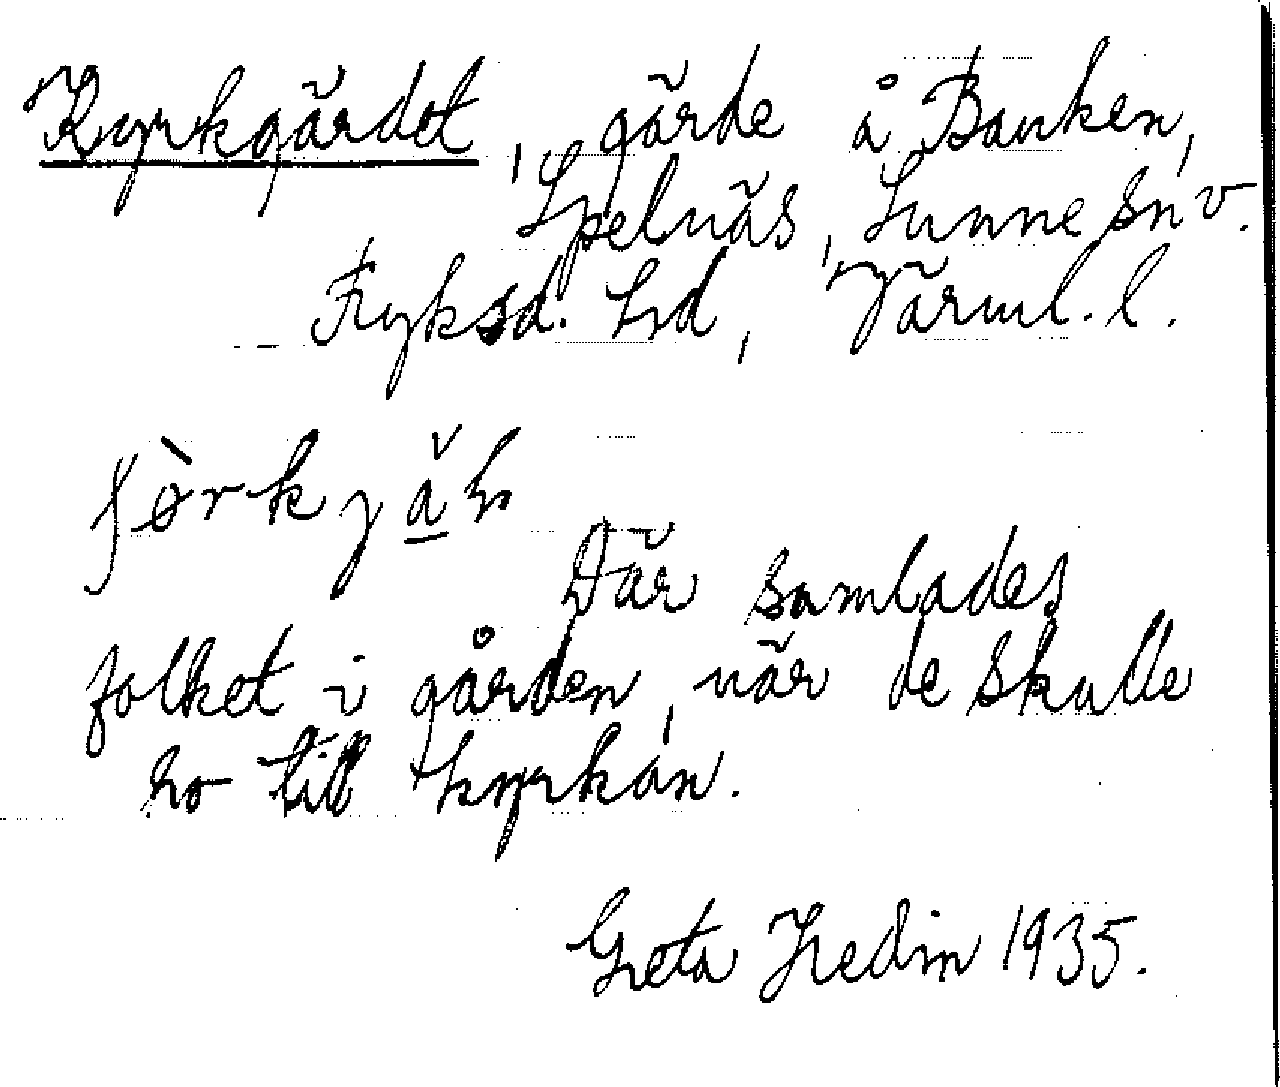 Kyrkgärdet, gärde å Banken,
Spelnäs, Sunne sn v.
Fryksd. hd, Värml. l.
Där samlades
folket i gården, när de skulle
ro till kyrkan.
Greta Hedin 1935.